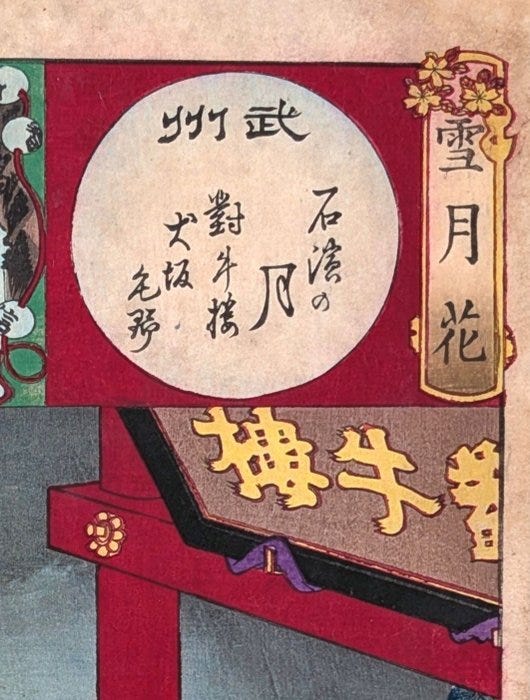 雪月花
武州
石濱の
月
對牛楼
犬坂
毛野
對牛樓